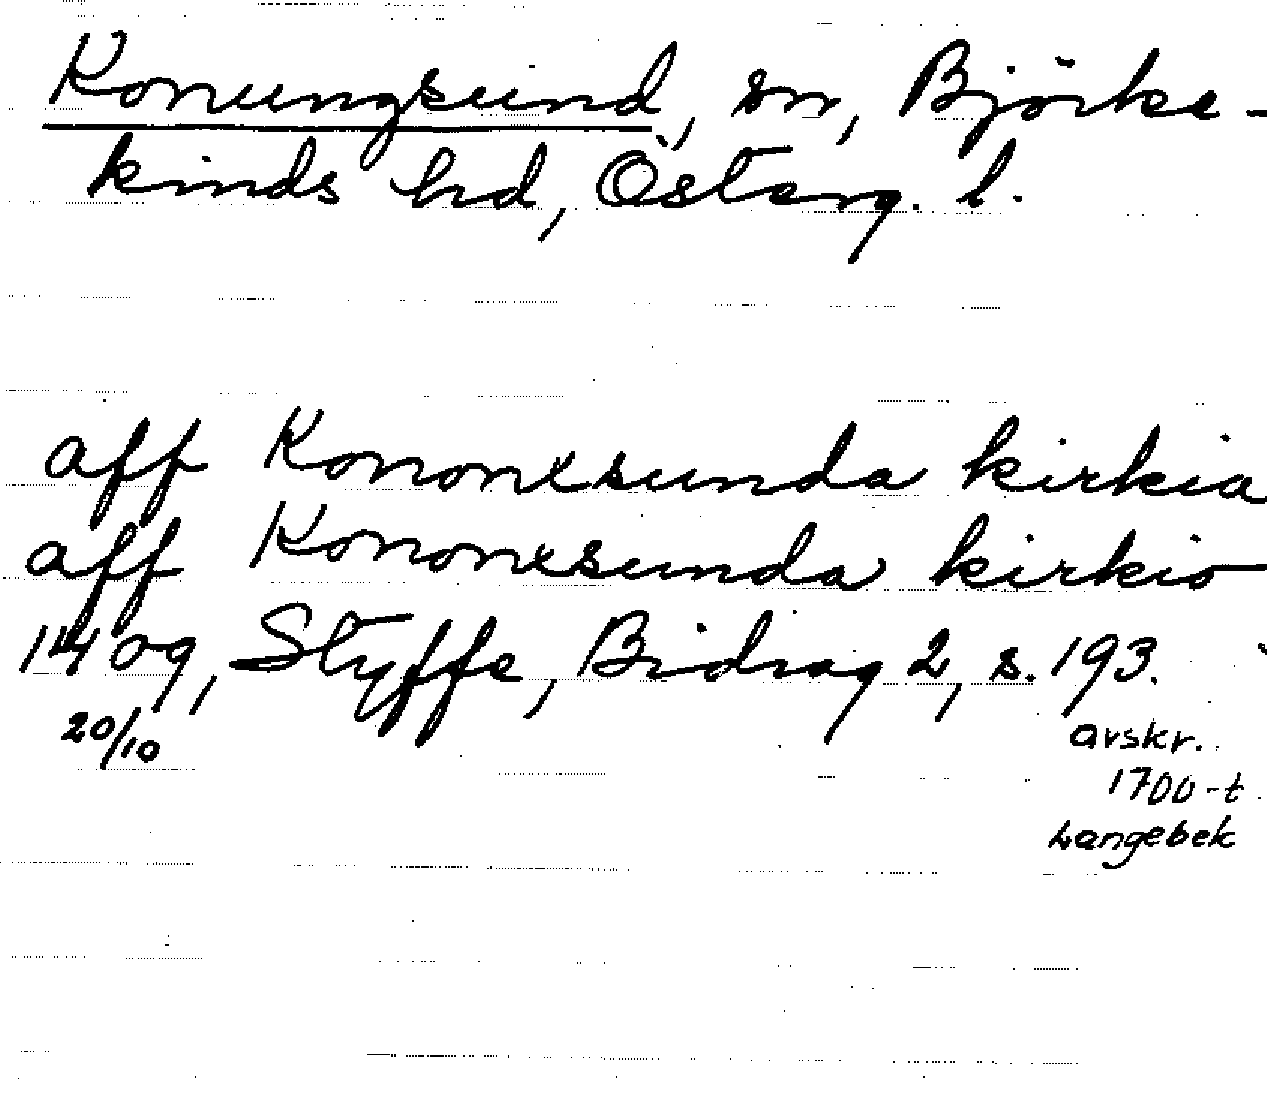 Konungsund, sn, Björke-
kinds hd, Österg. l.
aff Kononxsunda kirkia
aff Kononxsunda kirkio
1409, Styffe, Bidrag 2, s. 193.
20/10
avskr.
1700-t
Langebek